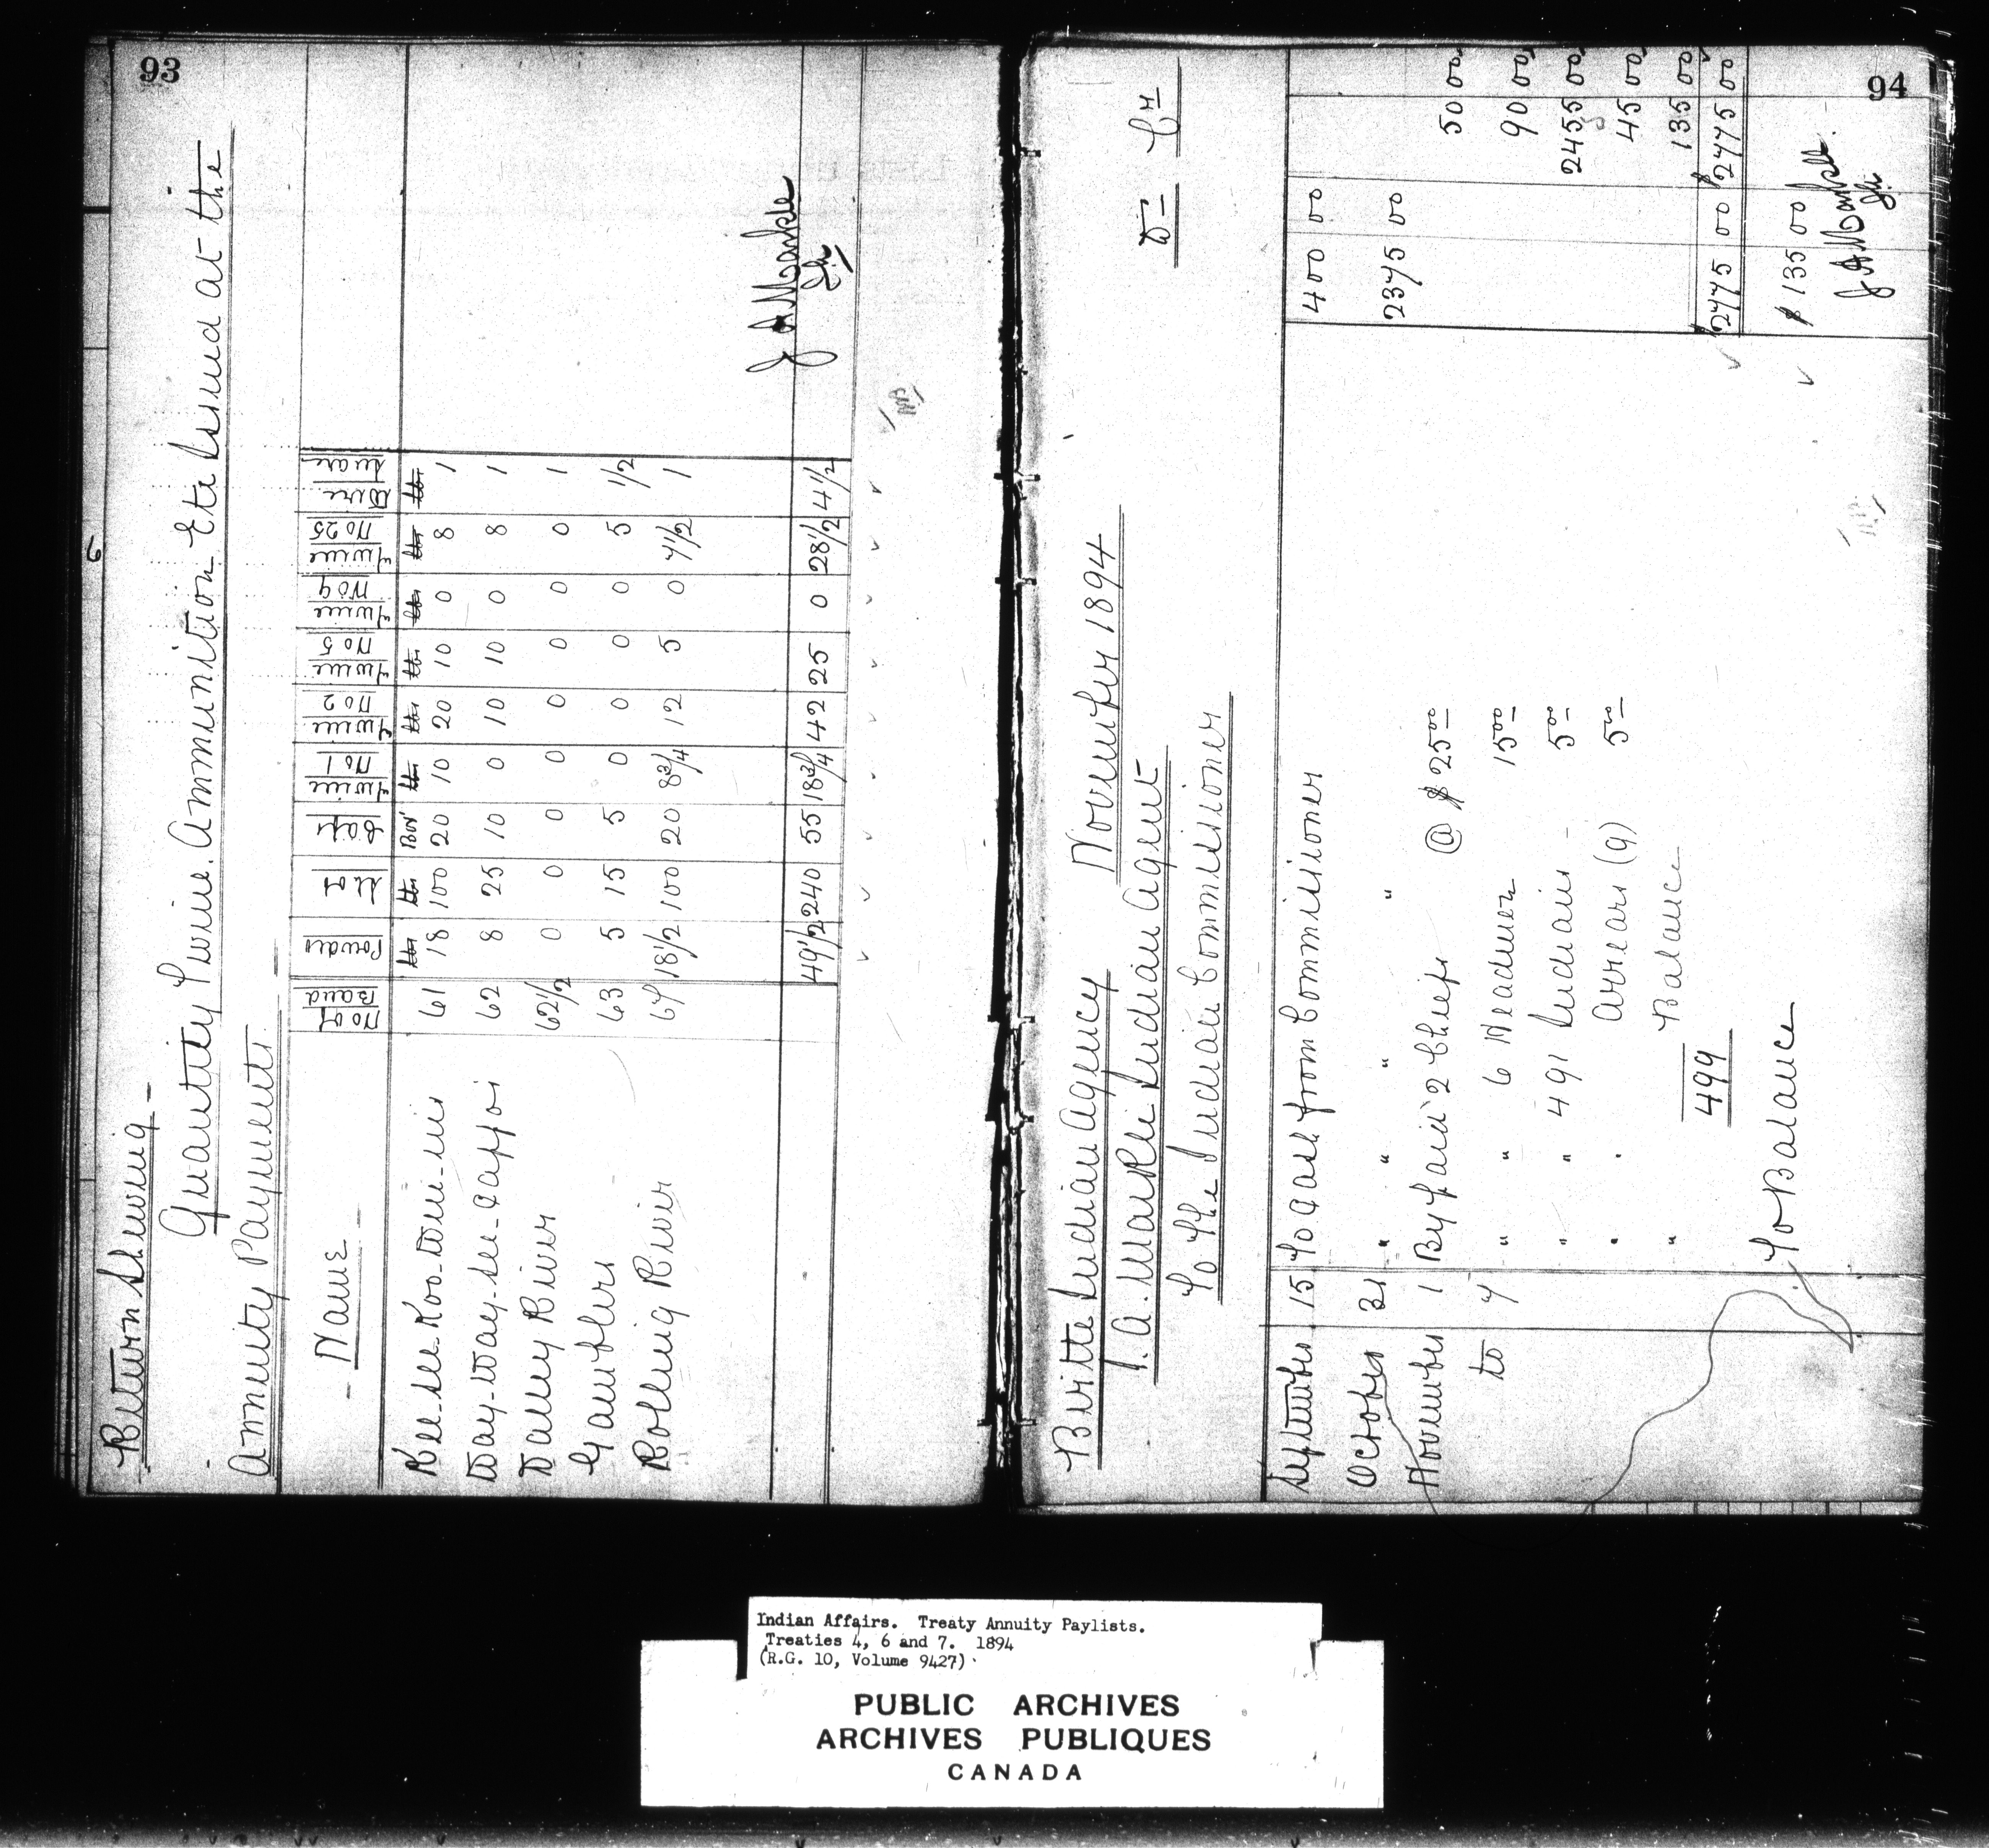 93
Return Shewing -
Quantity Twine. Ammunition Etc Issued at the
Annuity Payments.
- Name - No of Band Powder Shot Caps Twine No 1 Twine No 2 Twine No 5 Twine No 9 Twine No 25 Wire Snare
lbs lbs Box lbs lbs lbs lbs lbs lbs
Kee-see-Koo-wen-in 61 18 100 20 10 20 10 0 8 1
Way-Way-see-cappo 62 8 25 10 0 10 10 0 8 1
Valley River 62 1/2 0 0 0 0 0 0 0 0 1
Gamblers 63 5 15 5 0 0 0 0 5 1/2
Rolling River 67 18 1/2 100 20 8 3/4 12 5 0 7 1/2 1
J. A. Markle
49 1/2 240 55 18 3/4 42 25 0 28 1/2 4 1/2
94
Birtle Indian Agency November 1894
J. A. Markle Indian Agent
To The Indian Commissioner
Dr Cr
September 15 To Cash from Commissioner 400 00
October 31 " " " " 2375 00
November 1 By Paid 2 Chiefs @ $ 25 00 50 00
to 7 " " 6 Headmen 15 00 90 00
" " 491 Indians - 5 00 2455 00
" " Arrears (9) 5 00 45 00
" Balance 135 00
499 $2775 00 $2775 00
To Balance $ 135 00
J A Markle
Indian Affairs. Treaty Annuity Paylists.
Treaties 4, 6 and 7. 1894
(R.G. 10, Volume 9427)
PUBLIC ARCHIVES
ARCHIVES PUBLIQUES
CANADA